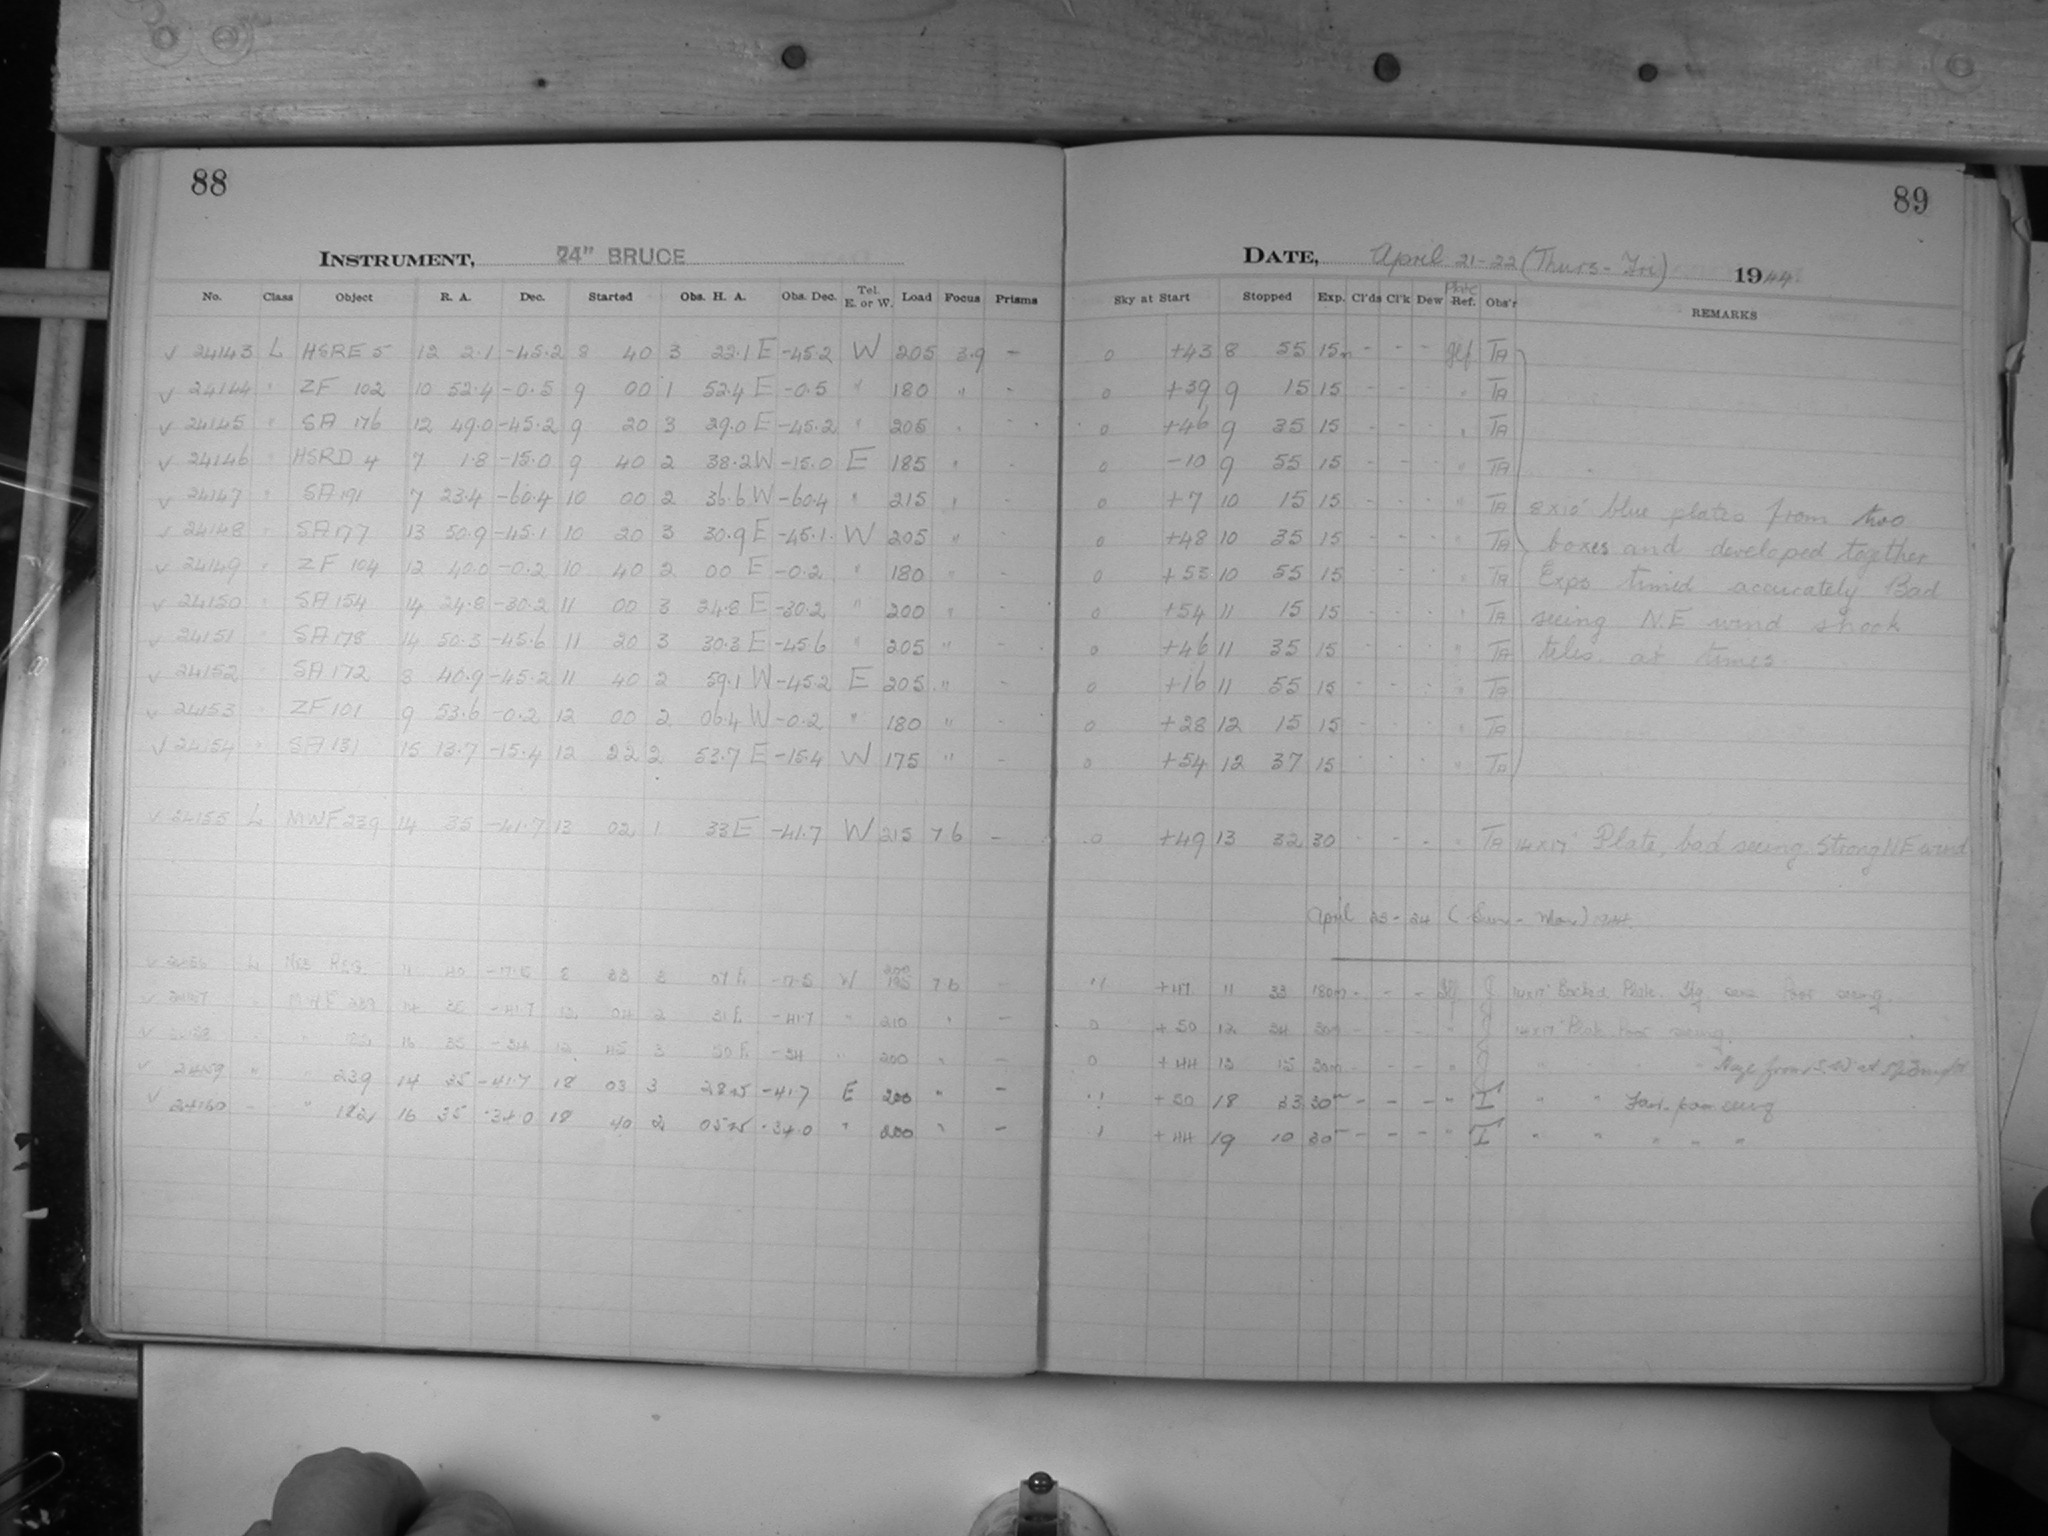 88
INSTRUMENT, 24" BRUCE
No. Class Object R. A. Dec. Started Obs. H. A. Obs. Dec. Tel. E. or W. Load Focus Prisms
√ 24143 L HSRE 5 12 2.1 -45.2 8 40 3 22.1 E -45.2 W 205 3.9 -
√ 24144 " ZF 102 10 52.4 -0.5 9 00 1 52.4 E -0.5 " 180 " -
√ 24145 " SA 176 12 49.0 -45.2 9 20 3 29.0 E -45.2 " 205 " -
√ 24146 " HSRD 4 7 1.8 -15.0 9 40 2 38.2 W -15.0 E 185 " -
√ 24147 " SA 191 7 23.4 -60.4 10 00 2 36.6 W -60.4 " 215 " -
√ 24148 " SA 177 13 50.9 -45.1 10 20 3 30.9 E -45.1 W 205 " -
√ 24149 " ZF 104 12 40.0 -0.2 10 40 2 00 E -0.2 " 180 " -
√ 24150 " SA 154 14 24.8 -30.2 11 00 3 24.8 E -30.2 " 200 " -
√ 24151 " SA 178 14 50.3 -45.6 11 20 3 30.3 E -45.6 " 205 " -
√ 24152 SA 172 8 40.9 -45.2 11 40 2 59.1 W -45.2 E 205 " -
√ 24153 " ZF 101 9 53.6 -0.2 12 00 2 06.4 W -0.2 " 180 " -
√ 24154 " SA 131 15 13.7 -15.4 12 22 2 53.7 E -15.4 W 175 " -
√ 24155 L MWF 239 14 35 -41.7 13 02 1 33 E -41.7 W 215 7.6 -
√ 24156 L 11 40 -7.5 8 33 3 07 E -7.5 W 195 7.6 -
√ 24157 " MWF 239 14 35 -41.7 12 04 2 31 E -41.7 " 210 " -
√ 24158 " " 182 16 35 -34 12 45 3 50 E -34 " 200 " -
√ 24159 " " 239 14 35 -41.7 18 03 3 28 W -41.7 E 200 " -
√ 24160 " " 182 16 35 -34.0 18 40 2 05 W -34.0 " 200 " -
89
DATE, April 21-22 (Thurs - Fri) 1944
Sky at Start Stopped Exp. Cl'ds Cl'k Dew Plate Ref. Obs'r REMARKS
0 +43 8 55 15m - - - TA
0 +39 9 15 15 - - - " TA
0 +46 9 35 15 - - - " TA
0 -10 9 55 15 - - - " TA
0 +7 10 15 15 - - - " TA 8x10" blue plates from two
0 +48 10 35 15 - - - " TA boxes and developed together
0 +53 10 55 15 - - - " TA Exps timed accurately Bad
0 +54 11 15 15 - - - " TA seeing N.E wind shook
0 +46 11 35 15 - - - " TA teles. at times.
0 +16 11 55 15 - - - " TA
0 +28 12 15 15 - - - " TA
0 +54 12 37 15 - - - " TA
0 +49 13 32 30 - - - " TA 14x17" Plate, bad seeing. Strong NE wind
April 23-24 (Sun - Mon) 1944.
+47 11 33 180m - - - J 14x17" Backed Plate. Poor seeing.
0 +50 12 34 30m - - - " J 14x17" Plate. Poor seeing.
0 +44 13 15 30m - - - " J " " " Haze from S.W at
+50 18 33 30m - - - " I " " seeing
+44 19 10 30m - - - " I " " " " "